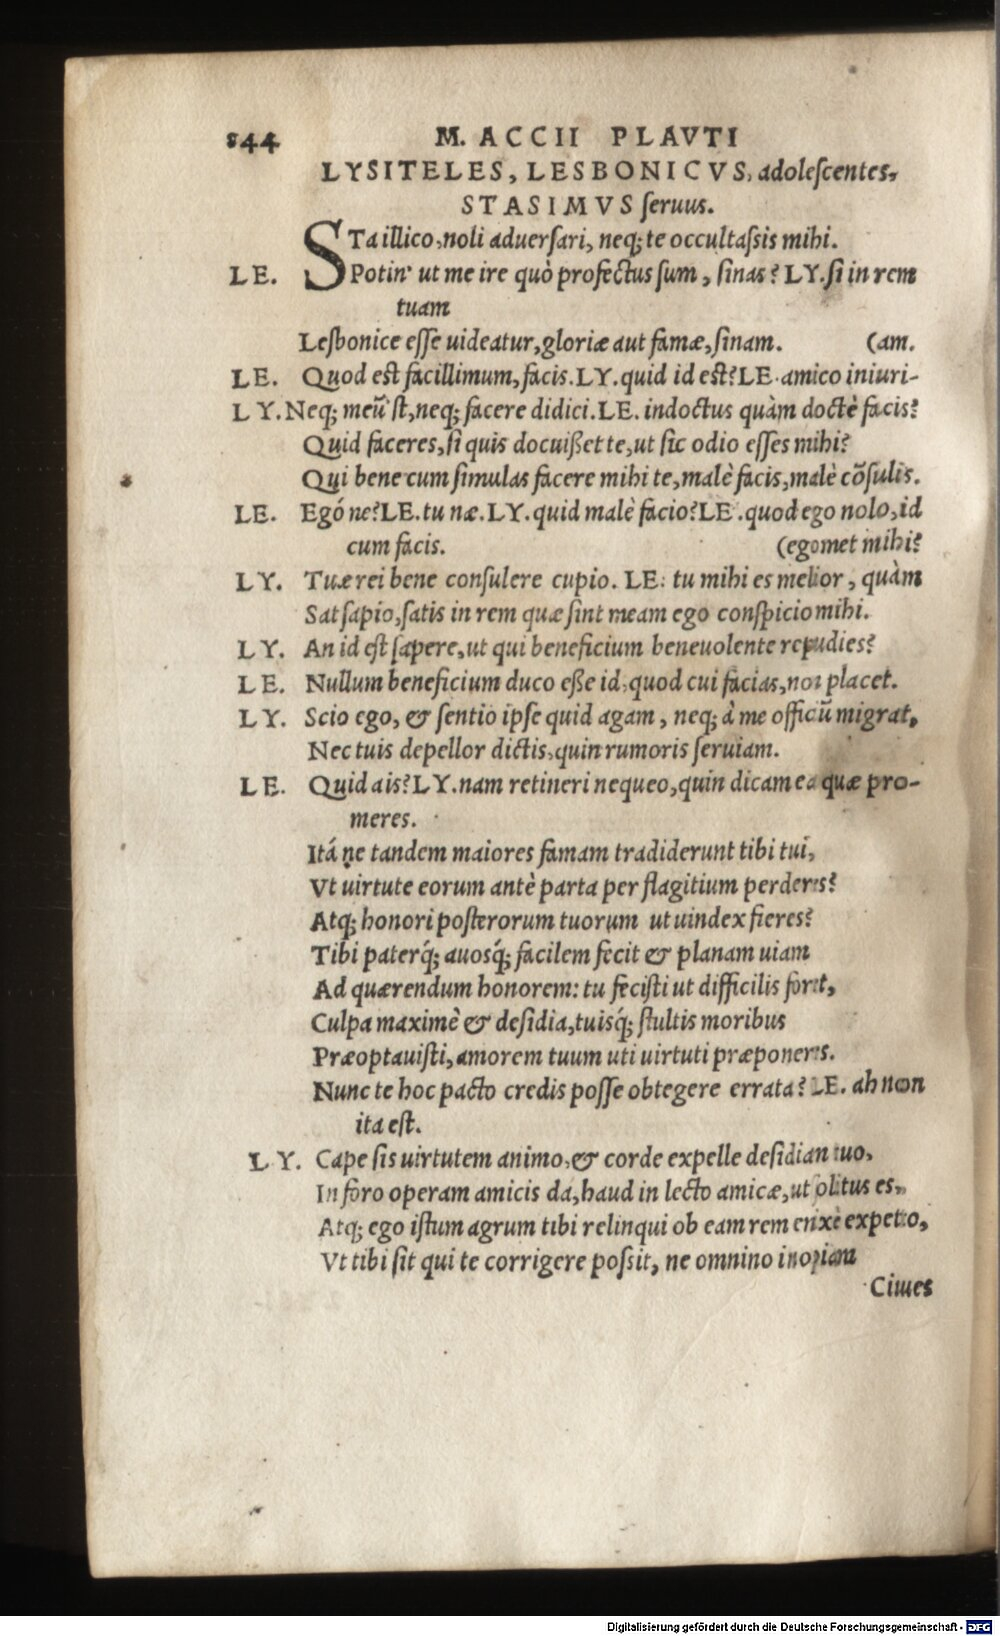 844 M. ACCII PLAVTI
LYSITELES, LESBONICVS, adoleſcentes,
STASIMVS ſeruus.
STa illico, noli aduerſari, neq; te occultaſsis mihi.
LE. Potin' ut me ire quò profectus ſum, ſinas? LY. ſi in rem
tuam
Leſbonice eſſe uideatur, gloriæ aut famæ, ſinam. (am.
LE. Quod eſt facillimum, facis. LY. quid id eſt? LE. amico iniuri-
LY. Neq; meũ'ſt, neq; facere didici. LE. indoctus quàm doctè facis?
Quid faceres, ſi quis docuißet te, ut ſic odio eſſes mihi?
Qui bene cum ſimulas facere mihi te, malè facis, malè cõſulis.
LE. Egó ne? LE. tu næ. LY. quid malè facio? LE. quod ego nolo, id
cum facis. (egomet mihi?
LY. Tuæ rei bene conſulere cupio. LE. tu mihi es melior, quàm
Sat ſapio, ſatis in rem quæ ſint meam ego conſpicio mihi.
LY. An id eſt ſapere, ut qui beneficium beneuolente repudies?
LE. Nullum beneficium duco eße id, quod cui facias, non placet.
LY. Scio ego, & ſentio ipſe quid agam, neq; à me officiũ migrat,
Nec tuis depellor dictis, quin rumoris ſeruiam.
LE. Quid ais? LY. nam retineri nequeo, quin dicam ea quæ pro-
meres.
Itá ne tandem maiores famam tradiderunt tibi tui,
Vt uirtute eorum antè parta per flagitium perderes?
Atq; honori poſterorum tuorum ut uindex fieres?
Tibi paterq́; auosq́; facilem fecit & planam uiam
Ad quærendum honorem: tu feciſti ut difficilis foret,
Culpa maximè & deſidia, tuisq́; ſtultis moribus
Præoptauiſti, amorem tuum uti uirtuti præponeres.
Nunc te hoc pacto credis poſſe obtegere errata? LE. ah non
ita eſt.
LY. Cape ſis uirtutem animo, & corde expelle deſidiam tuo,
In foro operam amicis da, haud in lecto amicæ, ut ſolitus es,
Atq; ego iſtum agrum tibi relinqui ob eam rem enixè expeto,
Vt tibi ſit qui te corrigere poſsit, ne omnino inopiam
Ciues
Digitalisierung gefördert durch die Deutsche Forschungsgemeinschaft - DFG